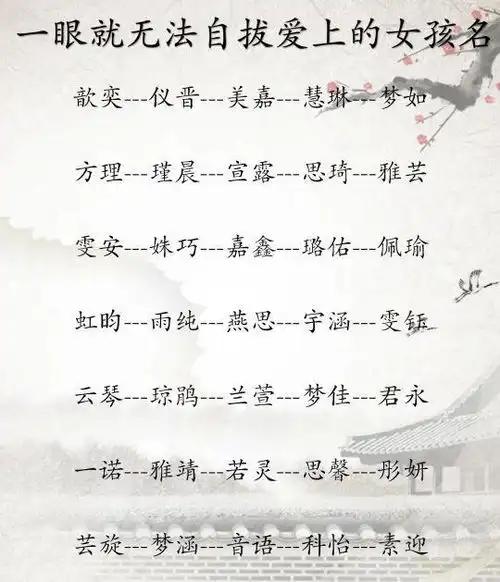 一眼就无法自拔爱上的女孩名
歆奕---仪晋---美嘉---慧琳---梦如
方理---瑾晨---宣露---思琦---雅芸
雯安---姝巧---嘉鑫---璐佑---佩瑜
虹昀---雨纯---燕思---宇涵---雯钰
云琴---琼鹃---兰萱---梦佳---君永
一诺---雅靖---若灵---思馨---彤妍
芸旋---梦涵---音语---科怡---素迎